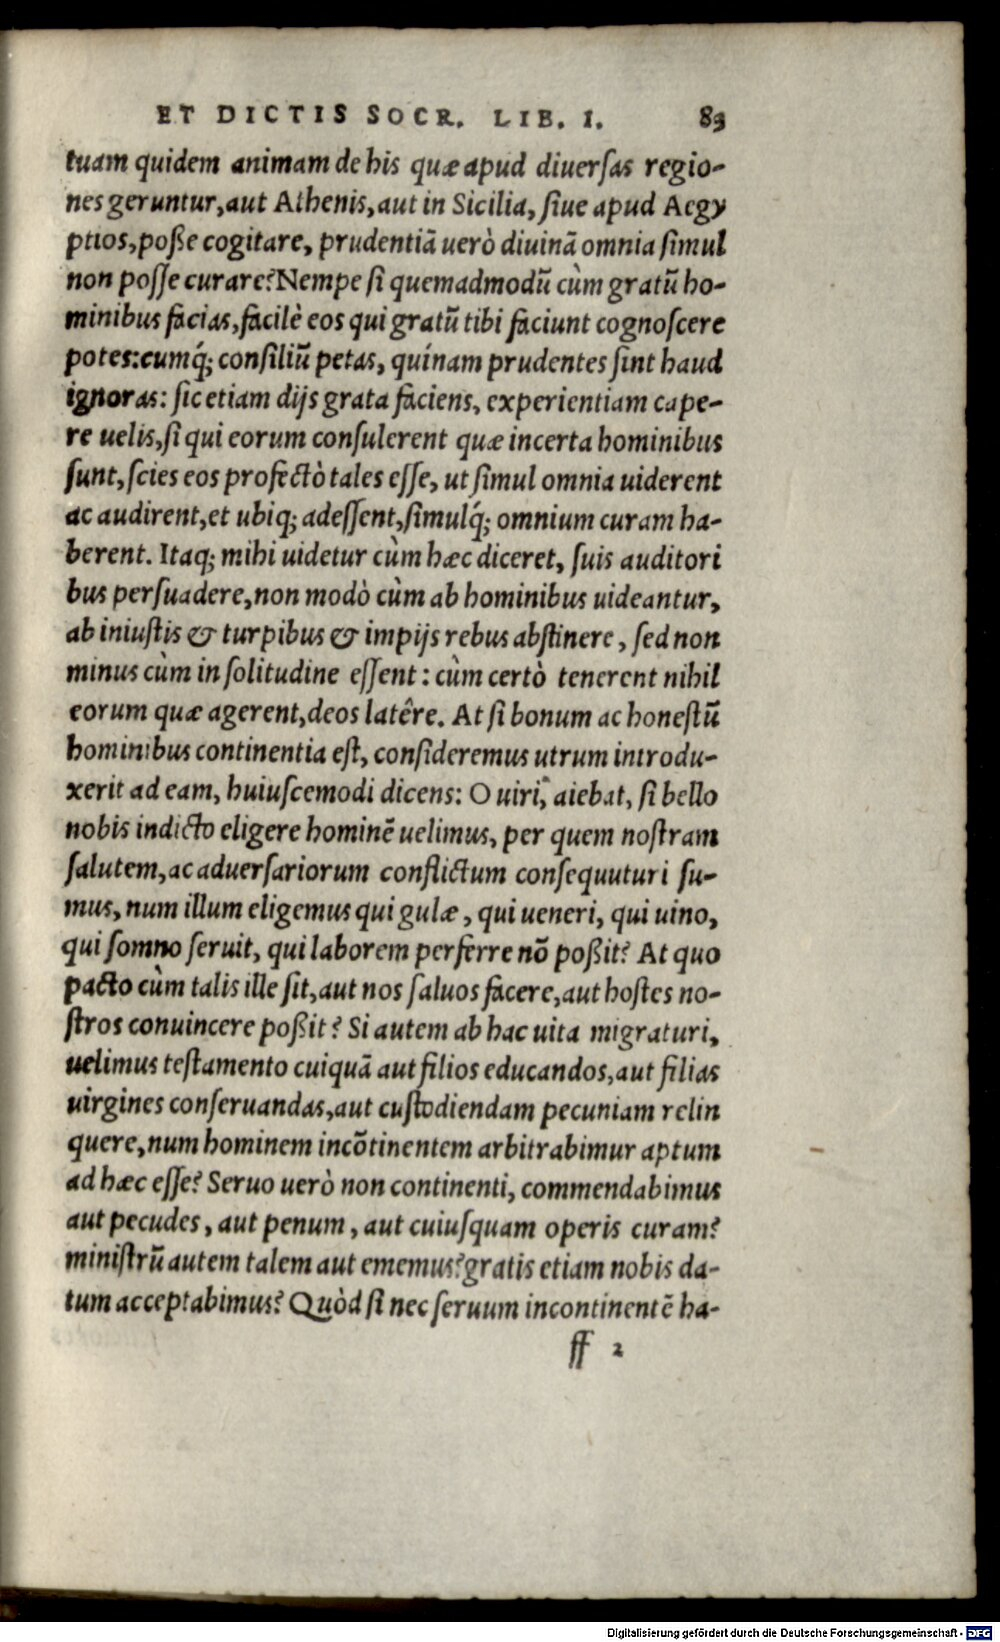 ET DICTIS SOCR. LIB. I. 83
tuam quidem animam de his quæ apud diuerſas regio-
nes geruntur, aut Athenis, aut in Sicilia, ſiue apud Aegy
ptios, poße cogitare, prudentiā uerò diuinā omnia ſimul
non poſſe curare? Nempe ſi quemadmodū cùm gratū ho-
minibus facias, facilè eos qui gratū tibi faciunt cognoſcere
potes: cumq́; conſiliū petas, quínam prudentes ſint haud
ignoras: ſic etiam dijs grata faciens, experientiam cape-
re uelis, ſi qui eorum conſulerent quæ incerta hominibus
ſunt, ſcies eos profectò tales eſſe, ut ſimul omnia uiderent
ac audirent, et ubiq; adeſſent, ſimulq́; omnium curam ha-
berent. Itaq; mihi uidetur cùm hæc diceret, ſuis auditori
bus perſuadere, non modò cùm ab hominibus uideantur,
ab iniuſtis & turpibus & impijs rebus abſtinere, ſed non
minus cùm in ſolitudine eſſent: cùm certò tenerent nihil
eorum quæ agerent, deos latêre. At ſi bonum ac honeſtū
hominibus continentia eſt, conſideremus utrum introdu-
xerit ad eam, huiuſcemodi dicens: O uiri, aiebat, ſi bello
nobis indicto eligere hominē uelimus, per quem noſtram
ſalutem, ac aduerſariorum conflictum conſequuturi ſu-
mus, num illum eligemus qui gulæ, qui ueneri, qui uino,
qui ſomno ſeruit, qui laborem perferre nō poßit? At quo
pacto cùm talis ille ſit, aut nos ſaluos facere, aut hoſtes no-
ſtros conuincere poßit? Si autem ab hac uita migraturi,
uelimus teſtamento cuiquā aut filios educandos, aut filias
uirgines conſeruandas, aut cuſtodiendam pecuniam relin
quere, num hominem incōtinentem arbitrabimur aptum
ad hæc eſſe? Seruo uerò non continenti, commendabimus
aut pecudes, aut penum, aut cuiuſquam operis curam?
miniſtrū autem talem aut ememus? gratis etiam nobis da-
tum acceptabimus? Quòd ſi nec ſeruum incontinentē ha-
ff 2
Digitalisierung gefördert durch die Deutsche Forschungsgemeinschaft - DFG